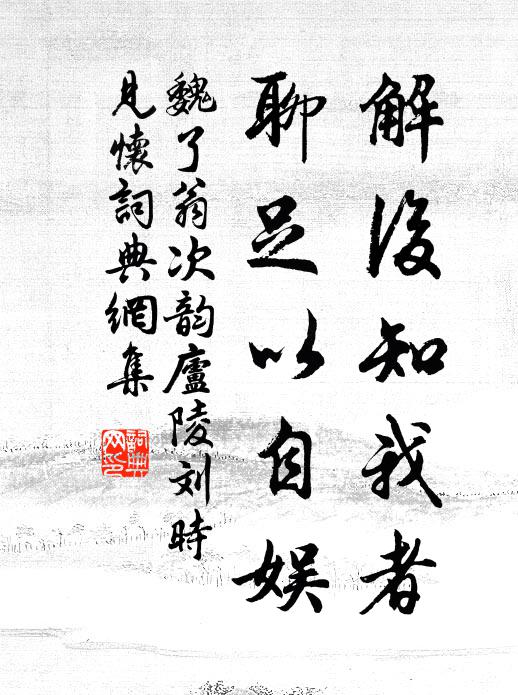 解後知我者
聊足以自娱
魏了翁次韵廬陵刘時
見懷詞典網集
詞典
网印